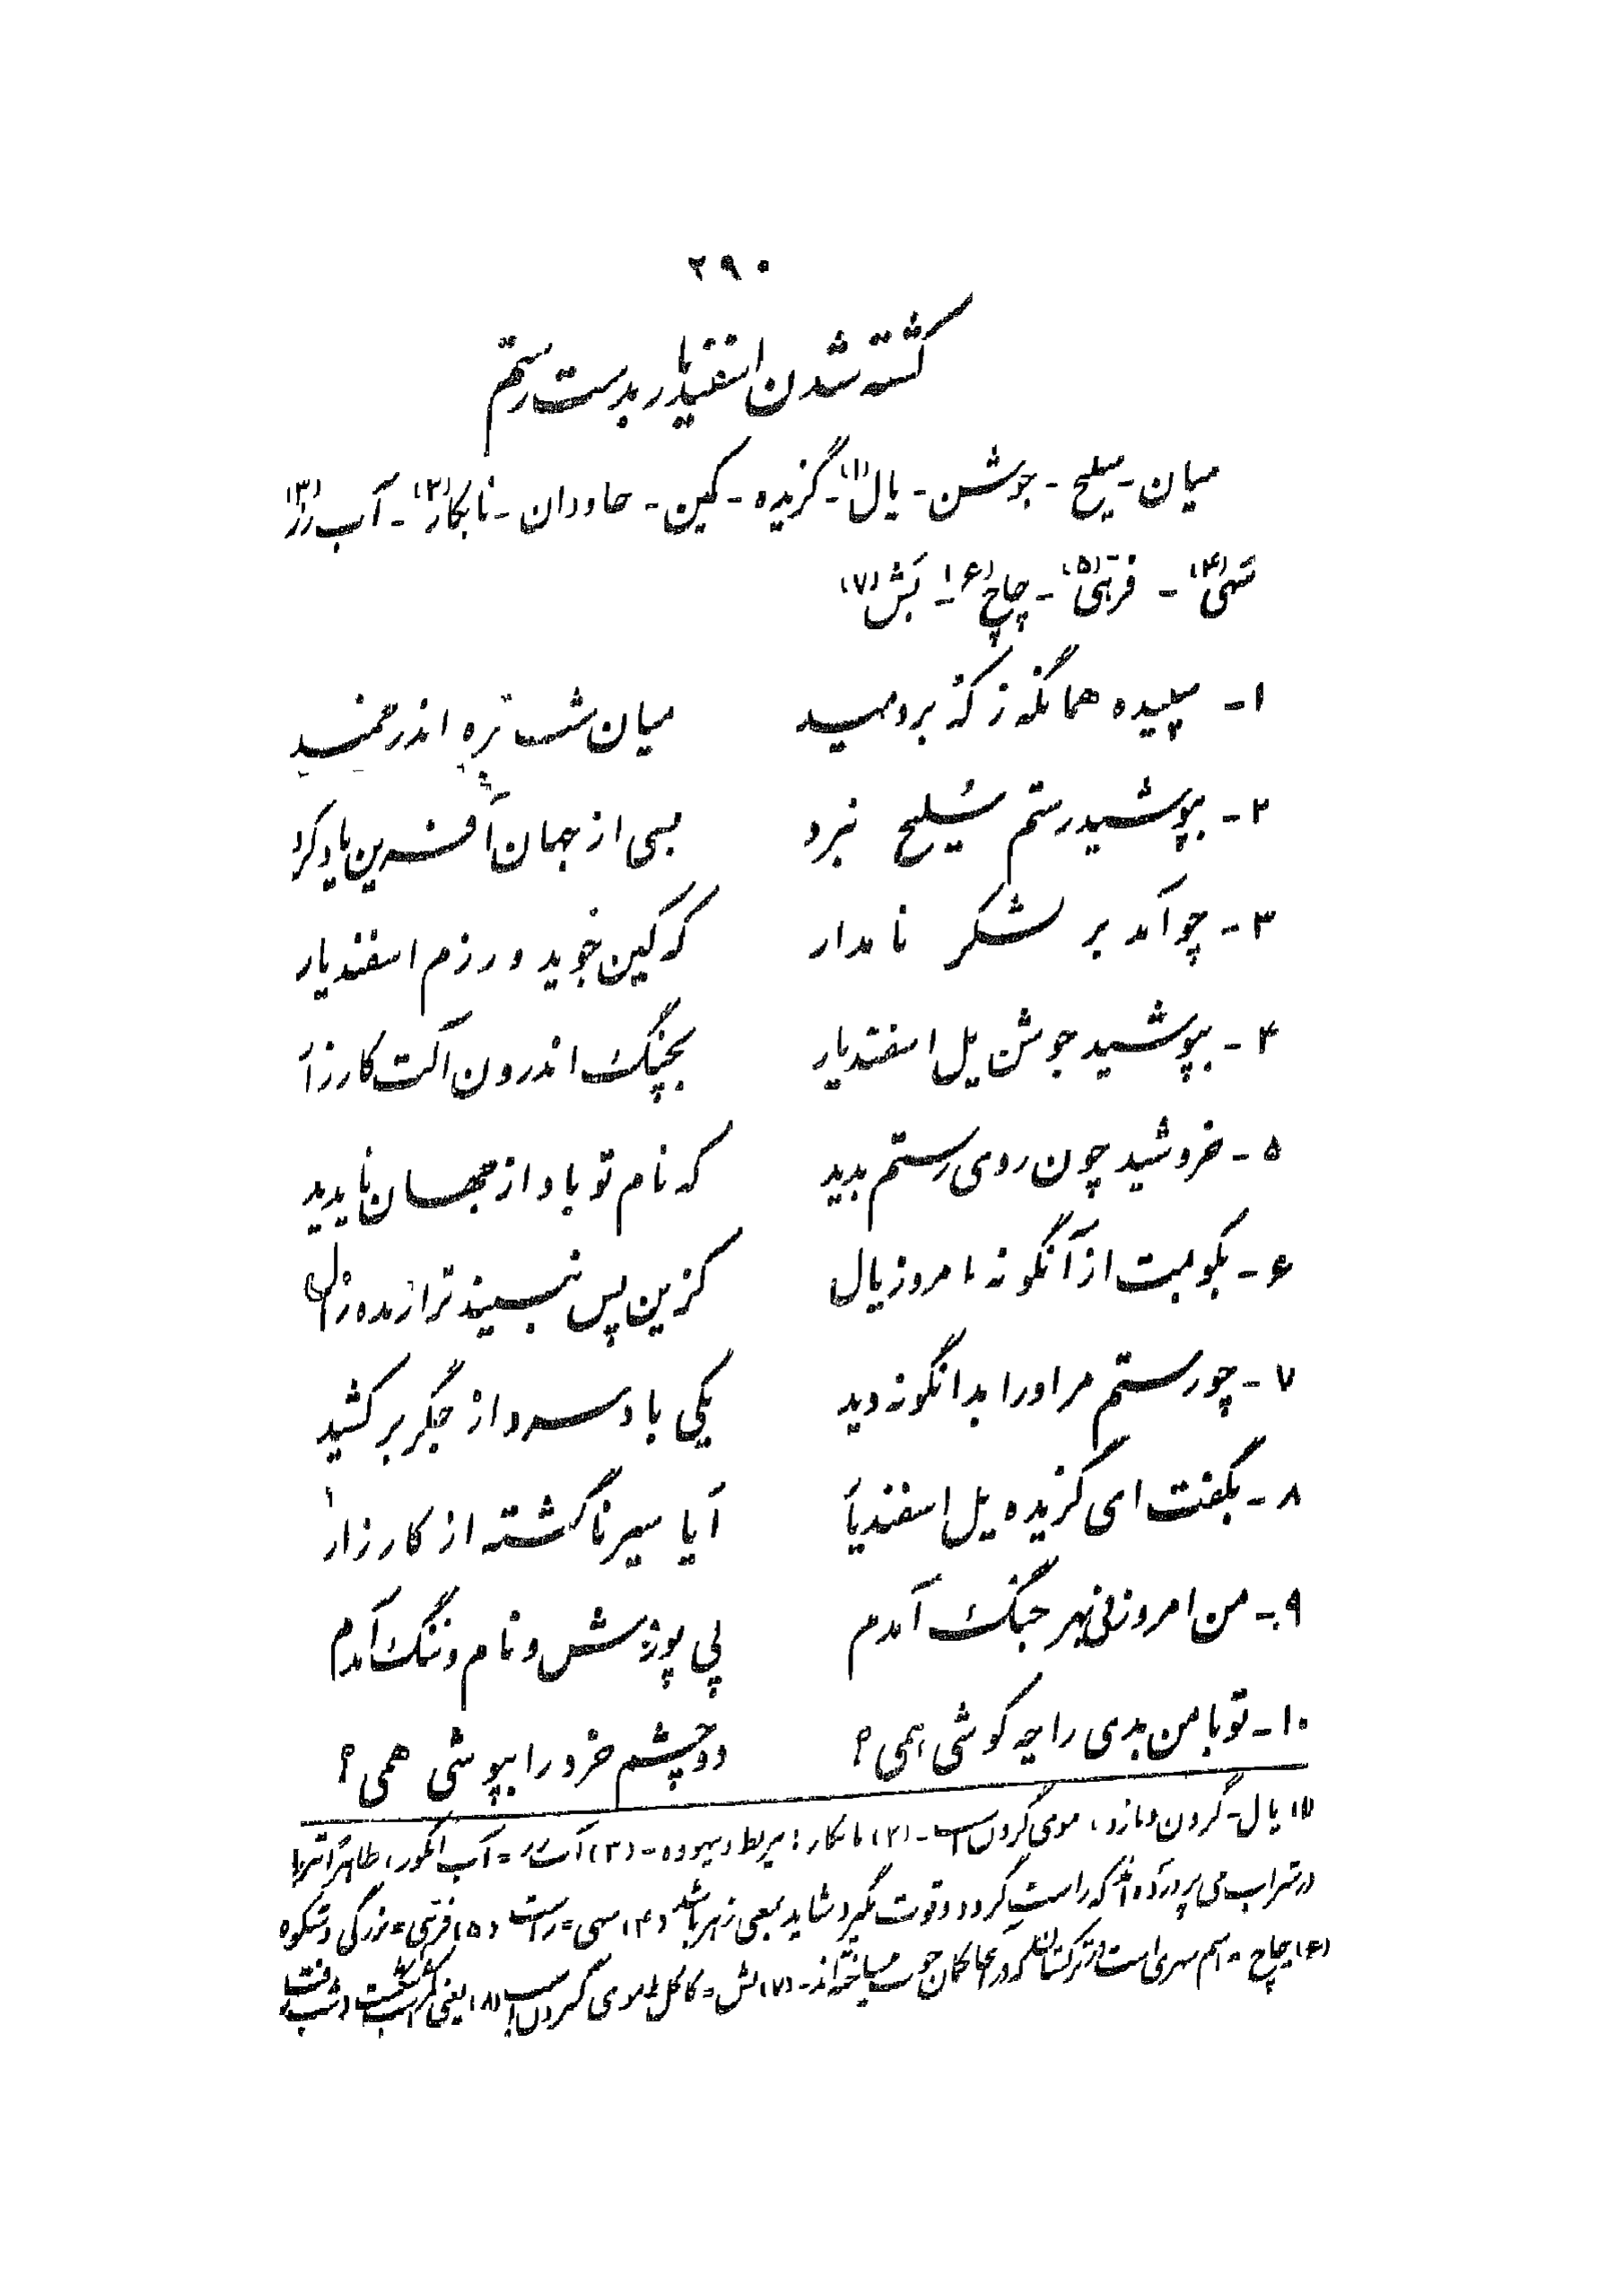 ۲۹۰
کشته شدن اسفندیار بدست رستم
میان - سلیح - جوشن - یال(۱) - گزیده - کین - جاودان - نابکار(۲) - آب رز(۳)
سهی(۴) - فرّهی(۵) - چاچ(۶) - بَش(۷)
۱- سپیده همانگه ز که بردمید میان شب تیره اندر خمید
۲- بپوشید رستم سُلیح نبرد بسی از جهان آفرین یاد کرد
۳- چو آمد بر لشکر نامدار که کین جوید و رزم اسفندیار
۴- بپوشید جوشن یل اسفندیار بچنگ اندرون آلت کارزار
۵- خروشید چون روی رستم بدید که نام تو باد از جهان ناپدید
۶- بکوبمت از آنگونه امروز یال کزین پس نبیند ترا زنده زال
۷- چو رستم مر او را بدانگونه دید یکی باد سرد از جگر بر کشید
۸- بگفت ای گزیده یل اسفندیار آیا سیر ناگشته از کارزار
۹- من امروز نی بهر جنگ آمدم پی پوزش و نام و ننگ آمدم
۱۰- تو با من بدی را چه کوشی همی؟ دو چشم خرد را بپوشی همی؟
(۱) یال - گردن و بازو، موی گردن اسب - (۲) نابکار: بی‌ربط و بیهوده - (۳) آب رز = آب انگور، ظاهراً تیر را
در شراب می پرورده‌اند که راست گردد و قوت گیرد شاید بمعنی زهر باشد (۴) سهی = راست (۵) فرّهی = بزرگی و شکوه
(۶) چاچ = اسم شهری است در ترکستان که در آنجا کمان خوب میساخته‌اند - (۷) بش = کاکل و موی گردن اسب (۸) یعنی شب